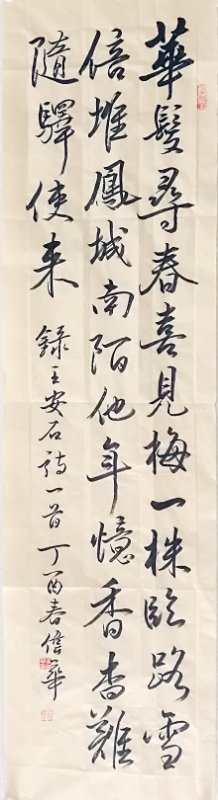 華髮尋春喜見梅一株临路雪
倍堆鳳城南陌他年憶香杳難
隨驛使来 錄王安石詩一首 丁酉春信華